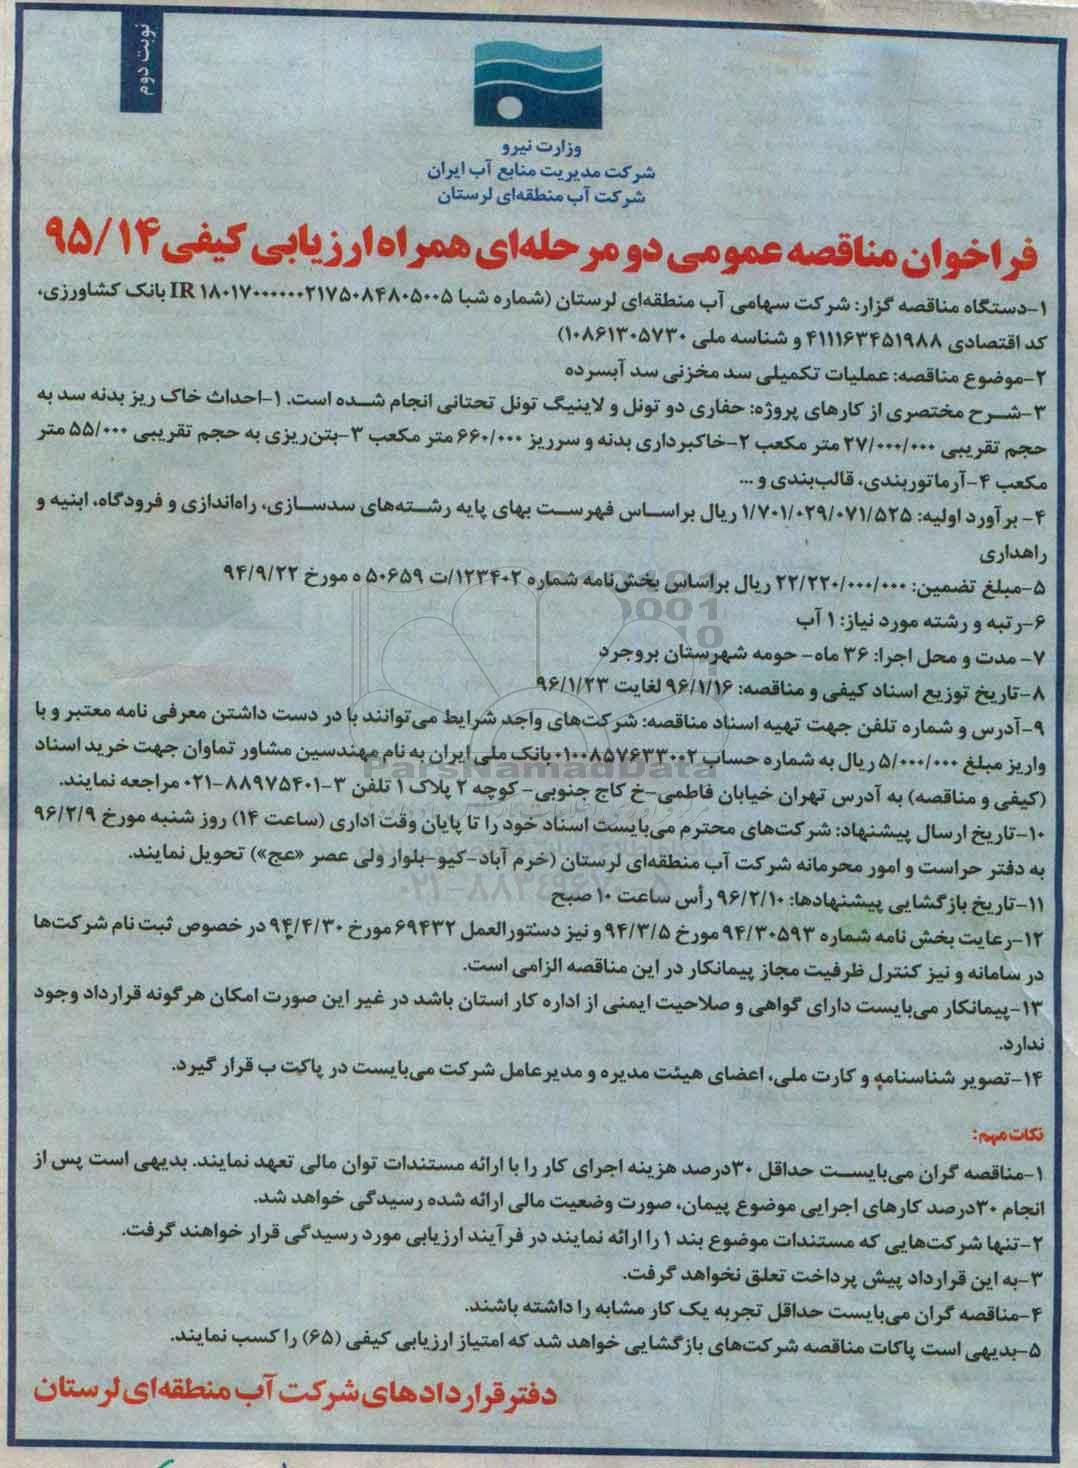 نوبت دوم
وزارت نیرو
شرکت مدیریت منابع آب ایران
شرکت آب منطقه‌ای لرستان
فراخوان مناقصه عمومی دو مرحله‌ای همراه ارزیابی کیفی ۹۵/۱۴
۱-دستگاه مناقصه گزار: شرکت سهامی آب منطقه‌ای لرستان (شماره شبا IR ۱۸۰۱۷۰۰۰۰۰۰۲۱۷۵۰۸۴۸۰۵۰۰۵ بانک کشاورزی،
کد اقتصادی ۴۱۱۱۶۳۴۵۱۹۸۸ و شناسه ملی ۱۰۸۶۱۳۰۵۷۳۰)
۲-موضوع مناقصه: عملیات تکمیلی سد مخزنی سد آبسرده
۳-شرح مختصری از کارهای پروژه: حفاری دو تونل و لاینیگ تونل تحتانی انجام شده است. ۱-احداث خاک ریز بدنه سد به
حجم تقریبی ۲۷/۰۰۰/۰۰۰ متر مکعب ۲-خاکبرداری بدنه و سرریز ۶۶۰/۰۰۰ متر مکعب ۳-بتن‌ریزی به حجم تقریبی ۵۵/۰۰۰ متر
مکعب ۴-آرماتوربندی، قالب‌بندی و ...
۴- برآورد اولیه: ۱/۷۰۱/۰۲۹/۰۷۱/۵۲۵ ریال براساس فهرست بهای پایه رشته‌های سدسازی، راه‌اندازی و فرودگاه، ابنیه و
راهداری
۵-مبلغ تضمین: ۲۲/۲۲۰/۰۰۰/۰۰۰ ریال براساس بخش‌نامه شماره ۱۲۳۴۰۲/ت ۵۰۶۵۹ ه مورخ ۹۴/۹/۲۲
۶-رتبه و رشته مورد نیاز: ۱ آب
۷- مدت و محل اجرا: ۳۶ ماه- حومه شهرستان بروجرد
۸-تاریخ توزیع اسناد کیفی و مناقصه: ۹۶/۱/۱۶ لغایت ۹۶/۱/۲۳
۹-آدرس و شماره تلفن جهت تهیه اسناد مناقصه: شرکت‌های واجد شرایط می‌توانند با در دست داشتن معرفی نامه معتبر و با
واریز مبلغ ۵/۰۰۰/۰۰۰ ریال به شماره حساب ۰۱۰۰۸۵۷۶۳۳۰۰۲ بانک ملی ایران به نام مهندسین مشاور تماوان جهت خرید اسناد
(کیفی و مناقصه) به آدرس تهران خیابان فاطمی-خ کاج جنوبی- کوچه ۲ پلاک ۱ تلفن ۳-۸۸۹۷۵۴۰۱-۰۲۱ مراجعه نمایند.
۱۰-تاریخ ارسال پیشنهاد: شرکت‌های محترم می‌بایست اسناد خود را تا پایان وقت اداری (ساعت ۱۴) روز شنبه مورخ ۹۶/۲/۹
به دفتر حراست و امور محرمانه شرکت آب منطقه‌ای لرستان (خرم آباد-کیو-بلوار ولی عصر «عج») تحویل نمایند.
۱۱-تاریخ بازگشایی پیشنهادها: ۹۶/۲/۱۰ رأس ساعت ۱۰ صبح
۱۲-رعایت بخش نامه شماره ۹۴/۳۰۵۹۳ مورخ ۹۴/۳/۵ و نیز دستورالعمل ۶۹۴۳۲ مورخ ۹۴/۴/۳۰ در خصوص ثبت نام شرکت‌ها
در سامانه و نیز کنترل ظرفیت مجاز پیمانکار در این مناقصه الزامی است.
۱۳-پیمانکار می‌بایست دارای گواهی و صلاحیت ایمنی از اداره کار استان باشد در غیر این صورت امکان هرگونه قرارداد وجود
ندارد.
۱۴-تصویر شناسنامه و کارت ملی، اعضای هیئت مدیره و مدیرعامل شرکت می‌بایست در پاکت ب قرار گیرد.
نکات مهم:
۱-مناقصه گران می‌بایست حداقل ۳۰درصد هزینه اجرای کار را با ارائه مستندات توان مالی تعهد نمایند. بدیهی است پس از
انجام ۳۰درصد کارهای اجرایی موضوع پیمان، صورت وضعیت مالی ارائه شده رسیدگی خواهد شد.
۲-تنها شرکت‌هایی که مستندات موضوع بند ۱ را ارائه نمایند در فرآیند ارزیابی مورد رسیدگی قرار خواهند گرفت.
۳-به این قرارداد پیش پرداخت تعلق نخواهد گرفت.
۴-مناقصه گران می‌بایست حداقل تجربه یک کار مشابه را داشته باشند.
۵-بدیهی است پاکات مناقصه شرکت‌های بازگشایی خواهد شد که امتیاز ارزیابی کیفی (۶۵) را کسب نمایند.
دفتر قراردادهای شرکت آب منطقه‌ای لرستان
ParsNamadData